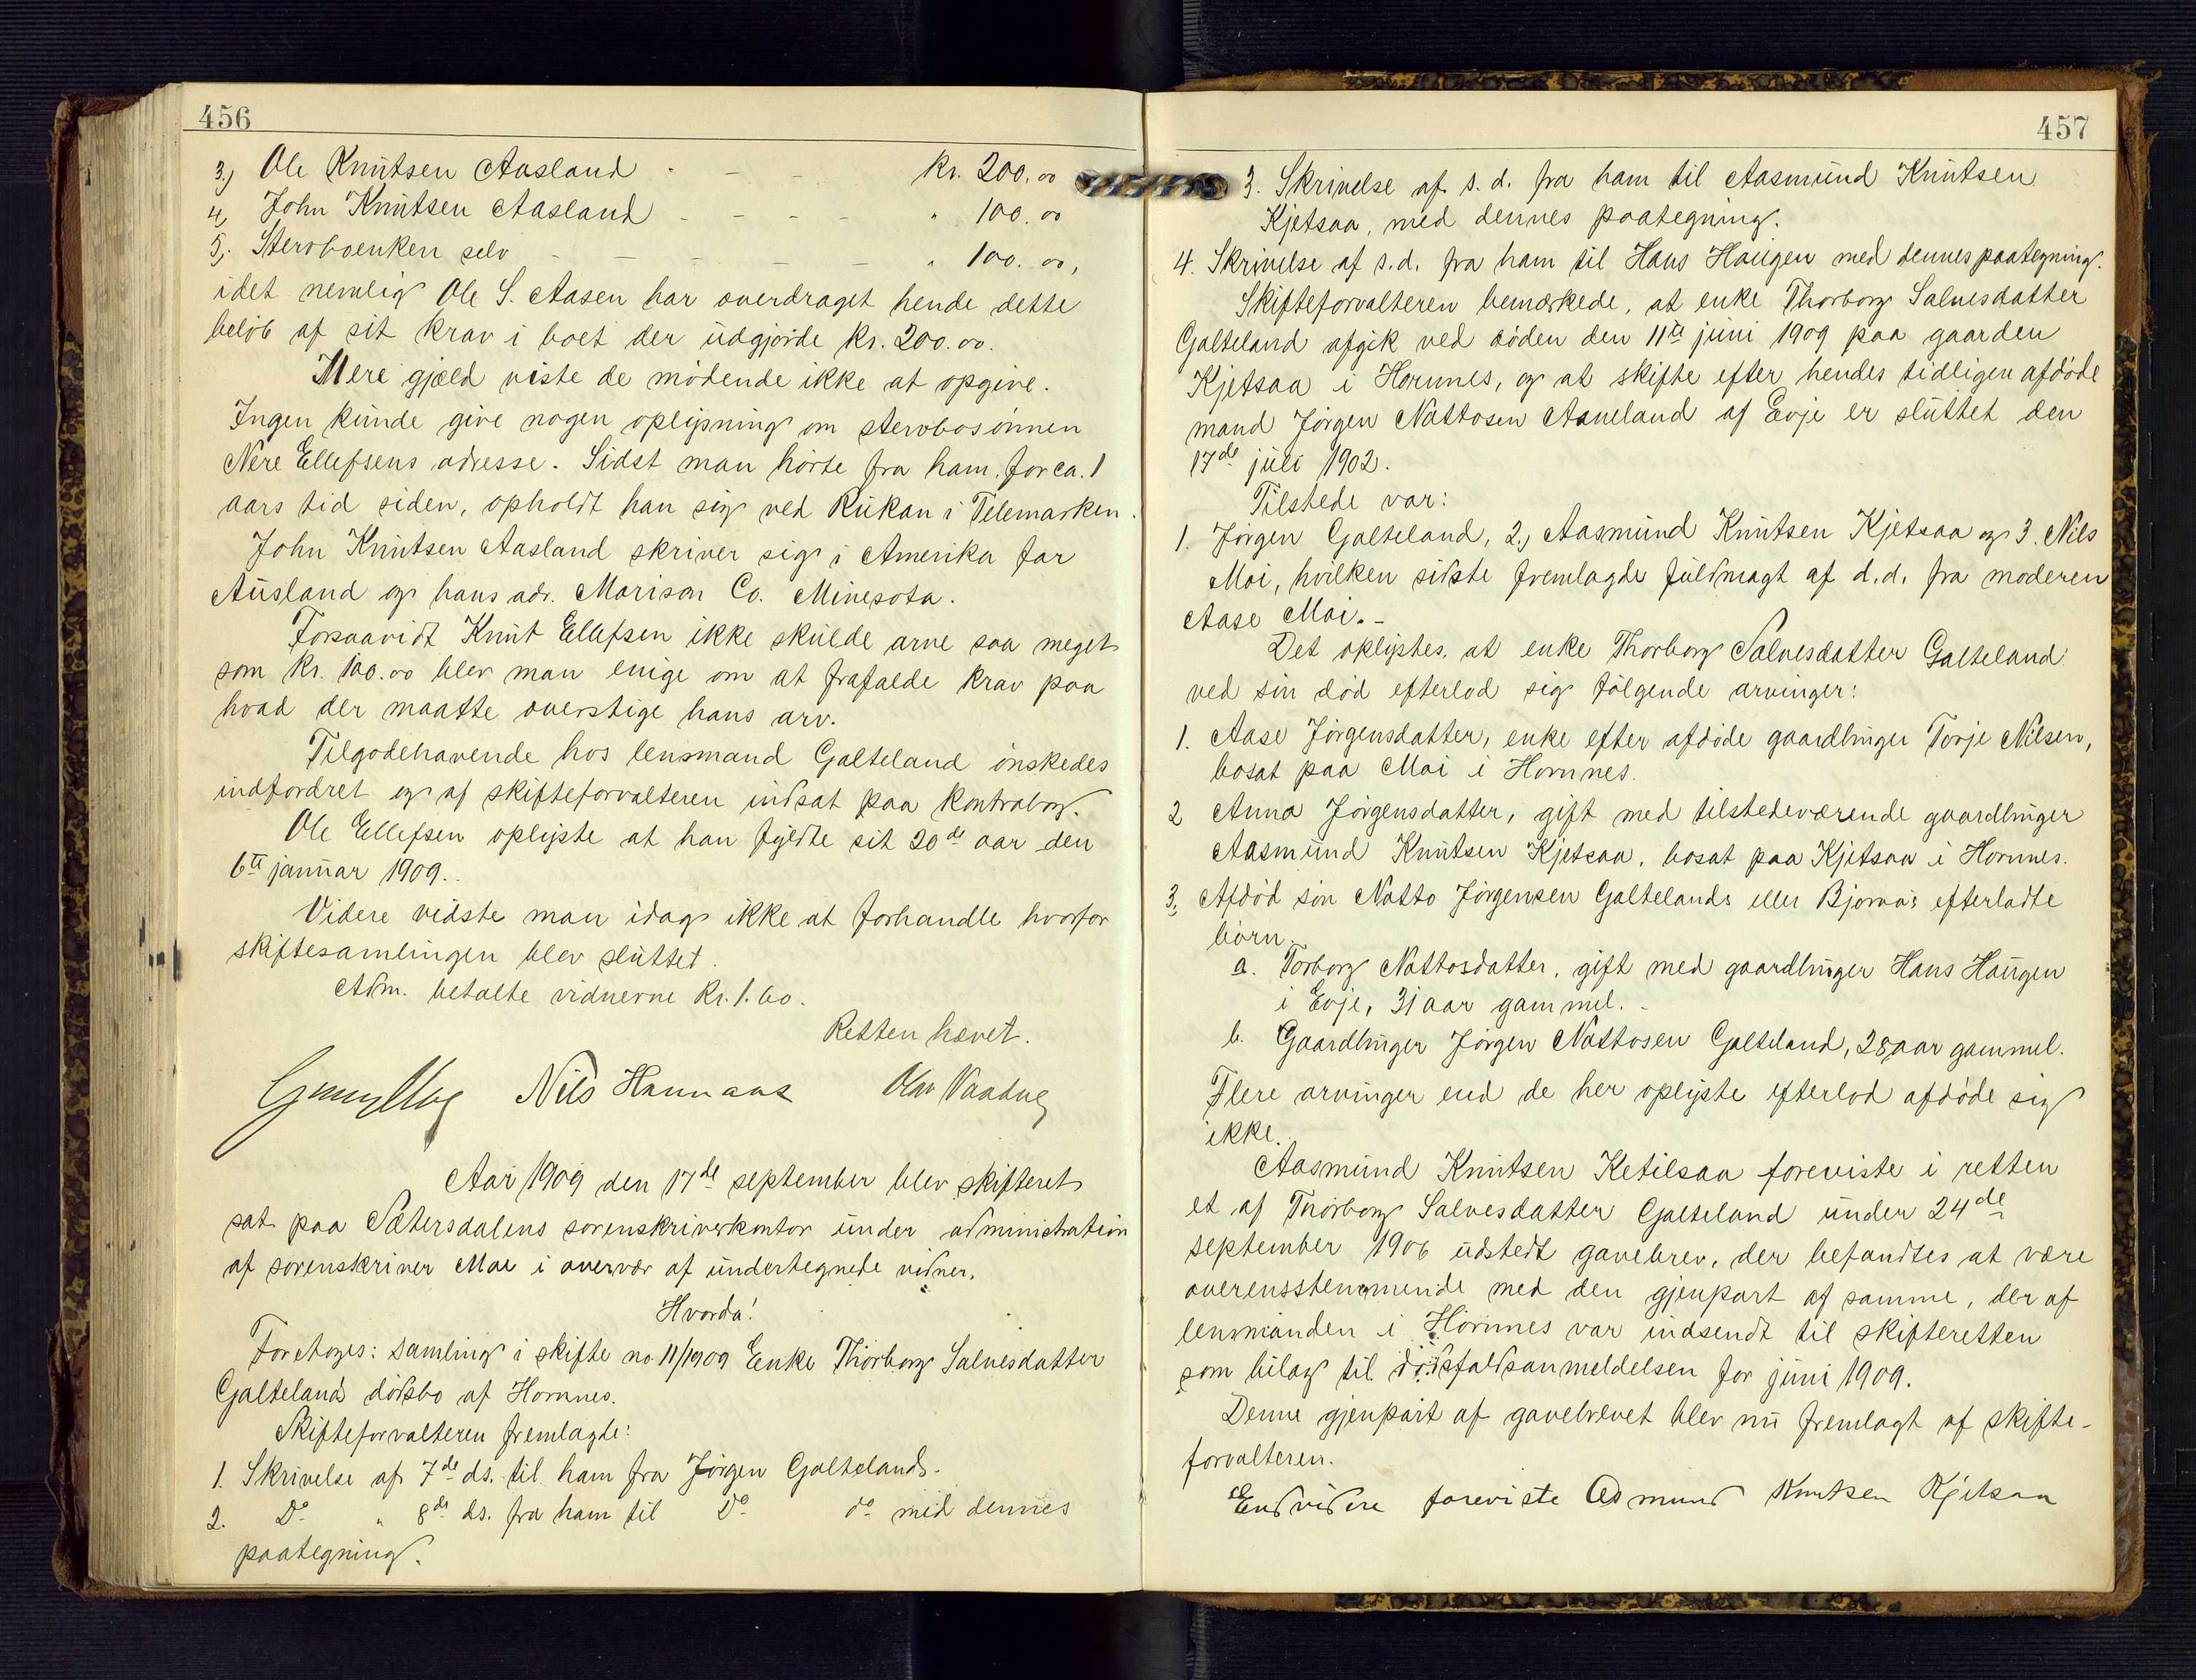 456
3.) Ole Knutsen Aasland - - - Kr. 200.00
4, John Knutsen Aasland - - - - " 100.00
5, Stervboenken selv - - - - - " 100.00,
idet nemlig Ole S. Aasen har overdraget hende dette
beløb af sit krav i boet der udgjorde kr. 200.00.
Mere gjæld viste de mødende ikke at opgive.
Ingen kunde give nogen oplysning om stervbosønnen
Nere Ellefsens adresse. Sidst man hørte fra ham, for ca. 1
aars tid siden, opholdt han sig ved Rukan i Telemarken.
John Knutsen Aasland skriver sig i Amerika for
Ausland og hans adr. Marison Co. Minesota.
Forsaavidt Knut Ellefsen ikke skulde arve saa meget
som kr. 100.00 blev man enige om at frafalde krav paa
hvad der maatte overstige hans arv.
Tilgodehavende hos lensmand Galteland ønskedes
indfordret og af skifteforvalteren indsat paa kontrabog.
Ole Ellefsen oplyste at han fyldte sit 20de aar den
6te januar 1909.
Videre vidste man idag ikke at forhandle hvorfor
skiftesamlingen blev sluttet.
Adm. betalte vidnerne kr. 1.60.
Retten hævet.
Nils Hannaas Olav Vaadne
Aar 1909 den 17de september blev skifteret
sat paa Sætersdalens sorenskriverkontor under administration
af sorenskriver Moe i overvær af undertegnede vidner.
Hvorda!
Foretoges: Samling i skifte no 11/1909 Enke Thorborg Salvesdatter
Galtelands dødsbo af Hornnes.
Skifteforvalteren fremlagde:
1. Skrivelse af 7de ds. til ham fra Jørgen Galteland.
2. Do " 8de ds. fra ham til Do do med dennes
paategning.
457
3. Skrivelse af s. d. fra ham til Aasmund Knutsen
Kjetsaa, med dennes paategning.
4. Skrivelse af s.d. fra ham til Hans Haugen med dennes paategning.
Skifteforvalteren bemærkede, at enke Thorborg Salvesdatter
Galteland afgik ved døden den 11te juni 1909 paa gaarden
Kjetsaa i Hornnes, og at skifte efter hendes tidligen afdøde
mand Jørgen Nattosen Aaneland af Evje er sluttet den
17de juli 1902.
Tilstede var:
1. Jørgen Galteland, 2.) Aasmund Knutsen Kjetsaa og 3. Nils
Moi, hvilken sidste fremlagde fuldmagt af d.d. fra moderen
Aase Moi. -
Det oplystes, at enke Thorborg Salvesdatter Galteland
ved sin død efterlod sig følgende arvinger:
1. Aase Jørgensdatter, enke efter afdøde gaardbruger Torje Nilsen,
bosat paa Moi i Hornnes.
2 Anna Jørgensdatter, gift med tilstedeværende gaardbruger
Aasmund Knutsen Kjetsaa, bosat paa Kjetsaa i Hornnes.
3, Afdød søn Natto Jørgensen Galtelands eller Bjoraas efterladte
børn.
a. Torborg Nattosdatter, gift med gaardbruger Hans Haugen
i Evje, 31 aar gammel. -
b. Gaardbruger Jørgen Nattosen Galteland, 28 aar gammel.
Flere arvinger end de her oplyste efterlod afdøde sig
ikke.
Aasmund Knutsen Ketilsaa foreviste i retten
et af Thorborg Salvesdatter Galteland under 24de
september 1906 udstedt gavebrev, der befandtes at være
overensstemmende med den gjenpart af samme, der af
lensmanden i Hornnes var indsendt til skifteretten
som bilag til dødsfaldsanmeldelsen for juni 1909.
Denne gjenpart af gavebrevet blev nu fremlagt af skifte-
forvalteren.
Endvidere foreviste Asmund Knutsen Kjetsaa